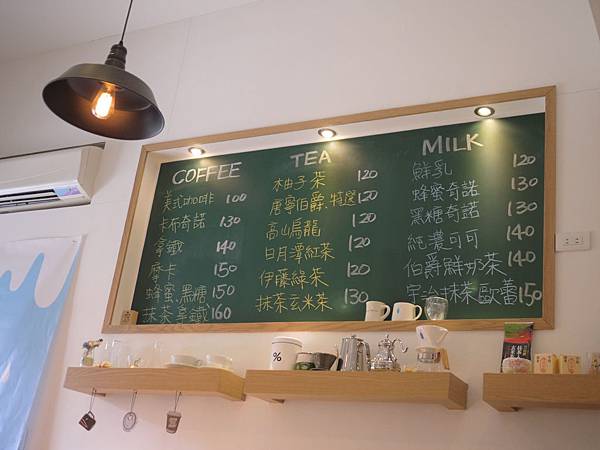 COFFEE
美式咖啡 100
卡布奇諾 130
拿鐵 140
摩卡 150
蜂蜜.黑糖 150
抹茶拿鐵 160
TEA
柚子茶 120
唐寧伯爵.特選 120
高山烏龍 120
日月潭紅茶 120
伊藤綠茶 120
抹茶玄米茶 130
MILK
鮮乳 120
蜂蜜奇諾 130
黑糖奇諾 130
純濃可可 140
伯爵鮮奶茶 140
宇治抹茶歐蕾 150
%